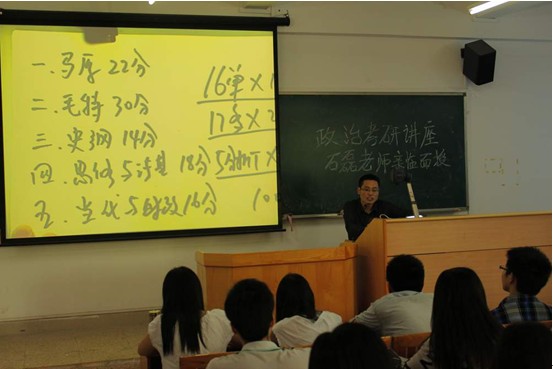 一. 马原 22分
二. 毛特 30分
三. 史纲 14分
四. 思修与法基 18分
五. 当代与时政 16分
16单×1
17多×2
5分析T×
10
政治考研讲座
石磊老师亲临面授